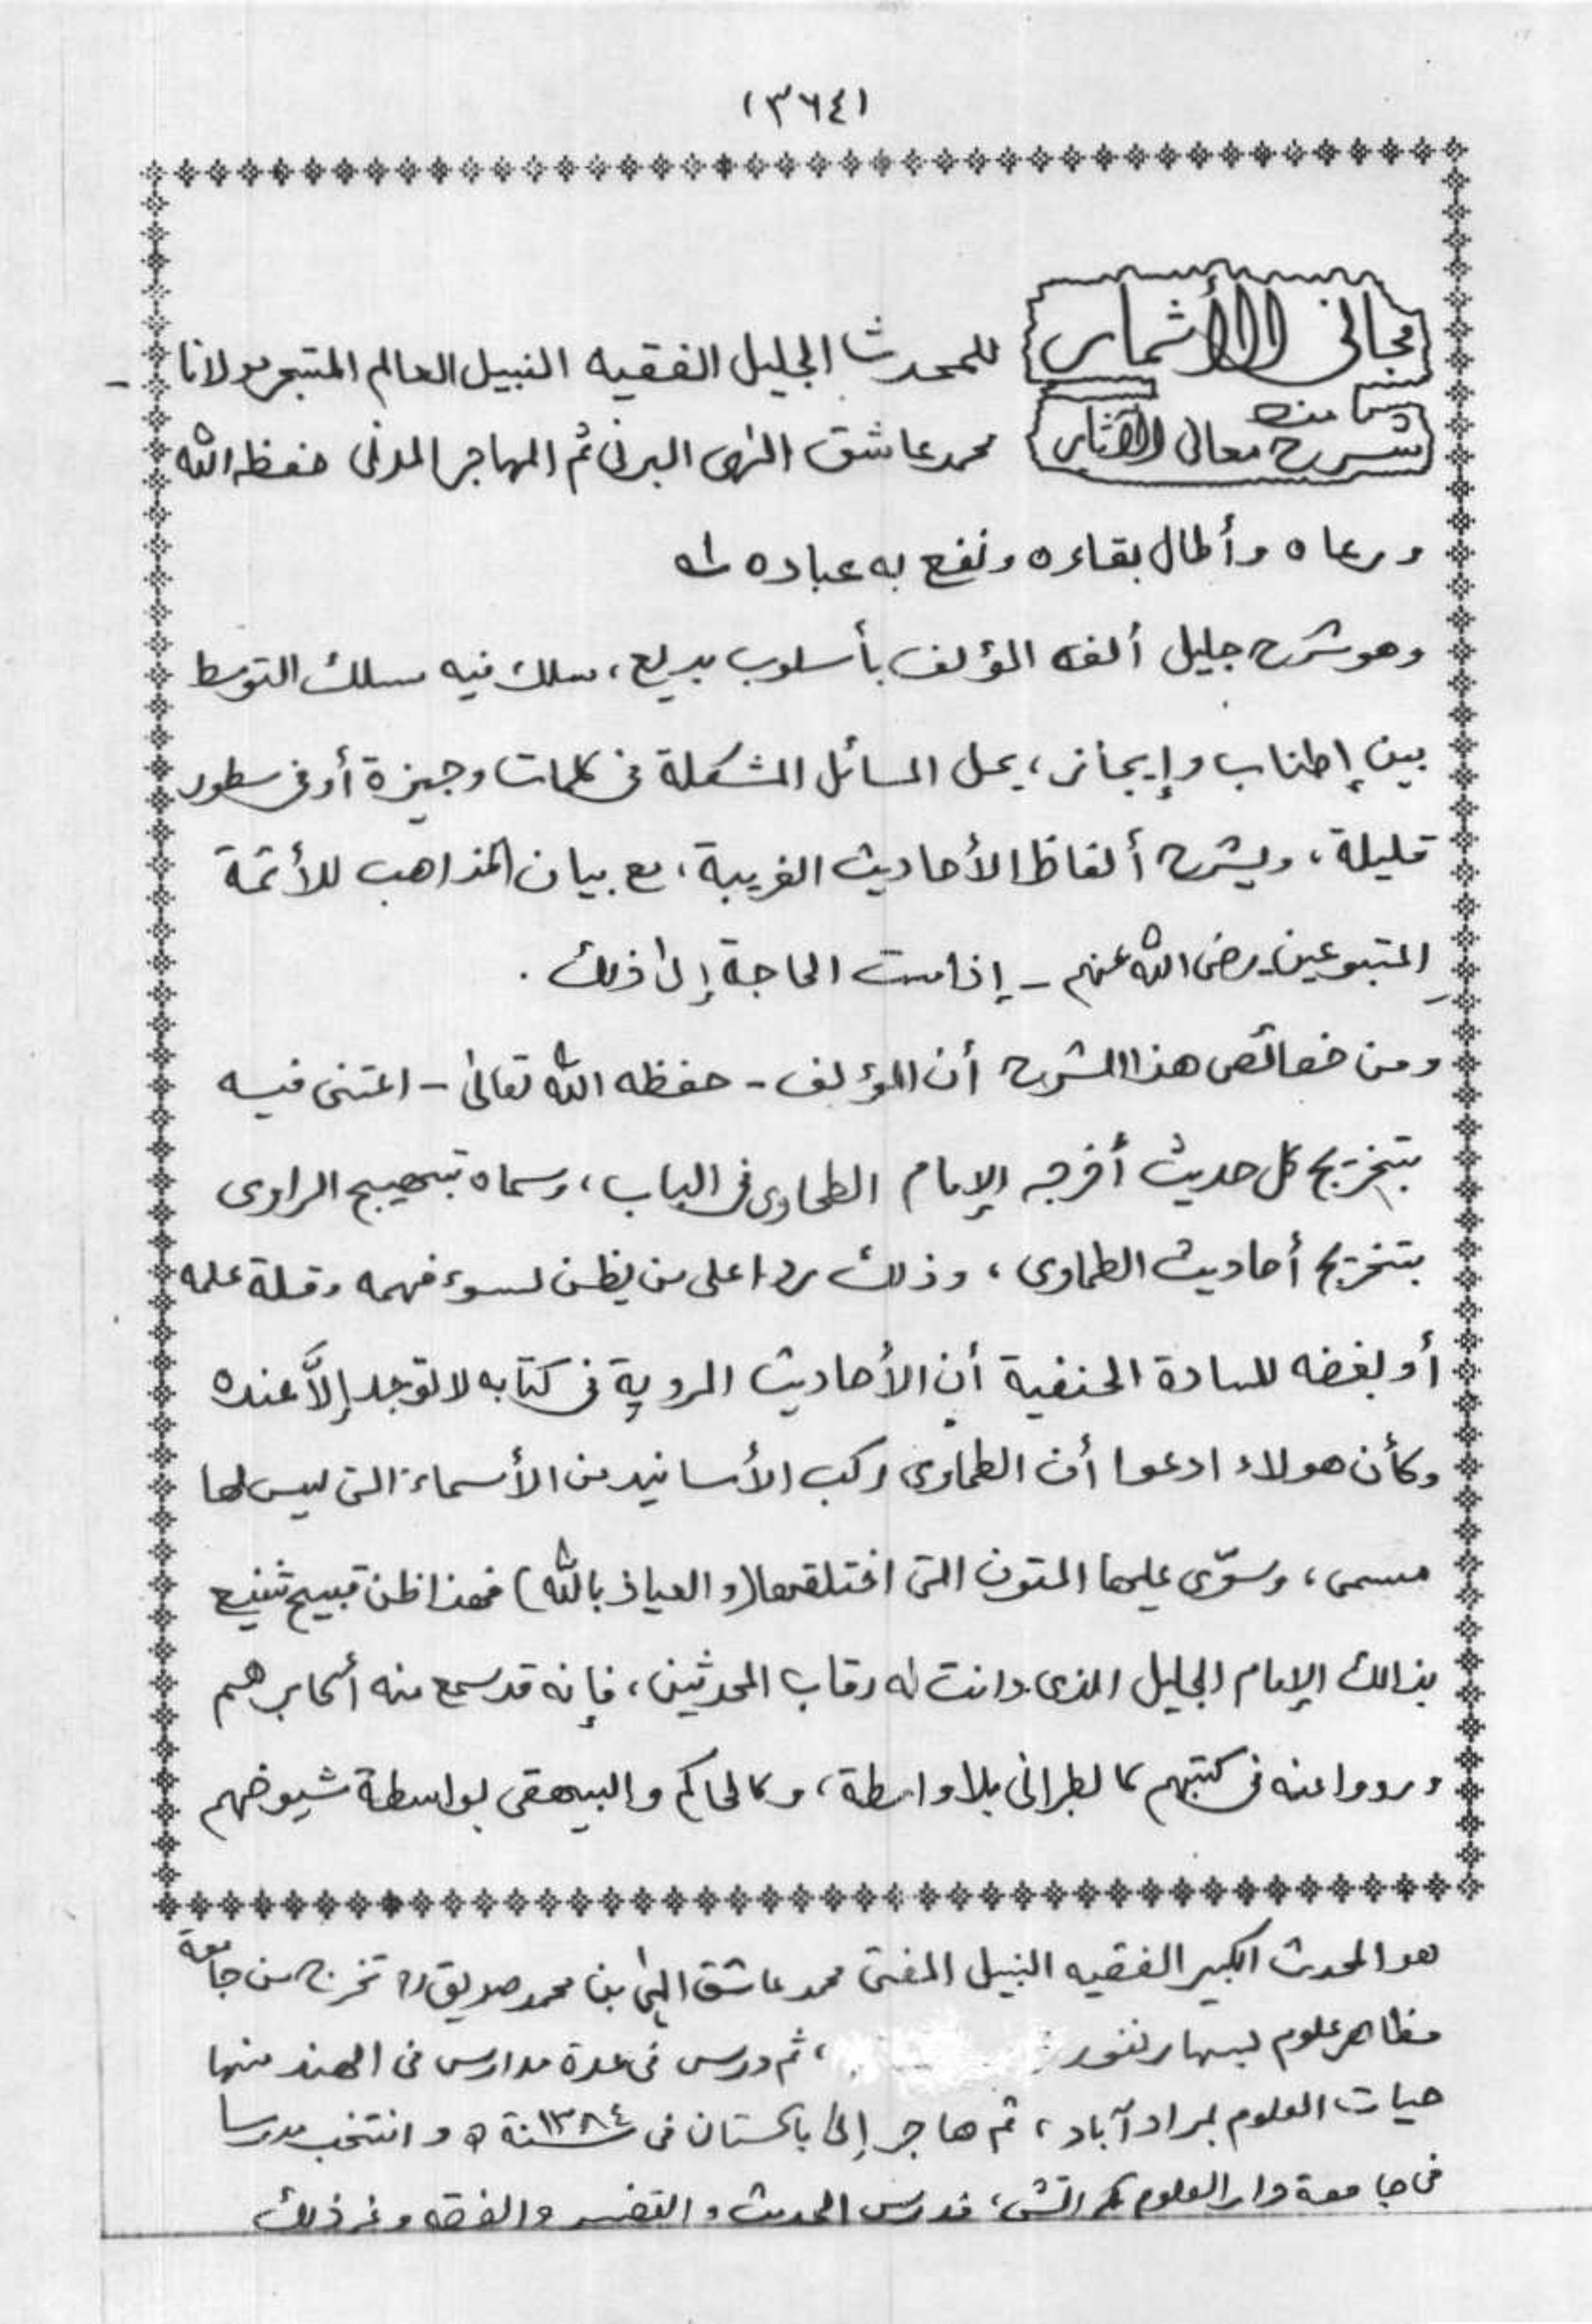 (٣٦٤)
مجانى الأثمار
من
شرح معانى الآثار
للمحدث الجليل الفقيه النبيل العالم المتبحر مولانا
محمد عاشق إلهى البرنى ثم المهاجر المدنى حفظه الله
ورعاه وأطال بقاءه ونفع به عباده
وهو شرح جليل ألفه المؤلف بأسلوب بديع، سلك فيه مسلك التوسط
بين إطناب وإيجاز، يحل المسائل المشكلة فى كلمات وجيزة أو فى سطور
قليلة، ويشرح ألفاظ الأحاديث الغريبة، مع بيان المذاهب للأئمة
المتبوعين رضى الله عنهم - إذا مست الحاجة إلى ذلك .
ومن خصائص هذا الشرح أن المؤلف - حفظه الله تعالى - اعتنى فيه
بتخريج كل حديث أخرجه الإمام الطحاوى فى الباب، وسماه تبهيج الراوى
بتخريج أحاديث الطحاوى، وذلك ردا على من يظن لسوء فهمه وقلة علمه
أو بغضه للسادة الحنفية أن الأحاديث المروية فى كتابه لا توجد إلاَّ عنده
وكأن هولاء ادعوا أن الطحاوى ركب الأسانيد من الأسماء التى ليس لها
مسمى، وسوّى عليها المتون التى اختلقها (والعياذ بالله) فهذا ظن قبيح شنيع
بذالك الإمام الجليل الذى دانت له رقاب المحدثين، فإنه قد سمع منه أكابرهم
ورووا عنه فى كتبهم كالطبرانى بلا واسطة، وكالحاكم والبيهقى بواسطة شيوخهم
هو المحدث الكبير الفقيه النبيل المفتى محمد عاشق إلهى بن محمد صديق تخرج من جامعة
مظاهر علوم بسهارنفور ، ثم درس فى عدة مدارس فى الهند منها
حيات العلوم بمراد آباد، ثم هاجر إلى باكستان فى سنة ١٣٨٤ ه وانتخب مدرسا
فى جامعة دار العلوم كراتشى، فدرس الحديث والتفسير والفقه وغير ذلك